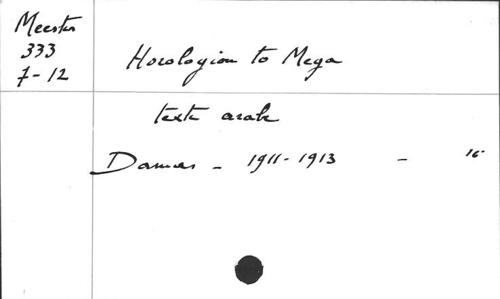 Meester
333
7-12
Horologion to Mega
texte arabe
Damas - 1911-1913 - 16